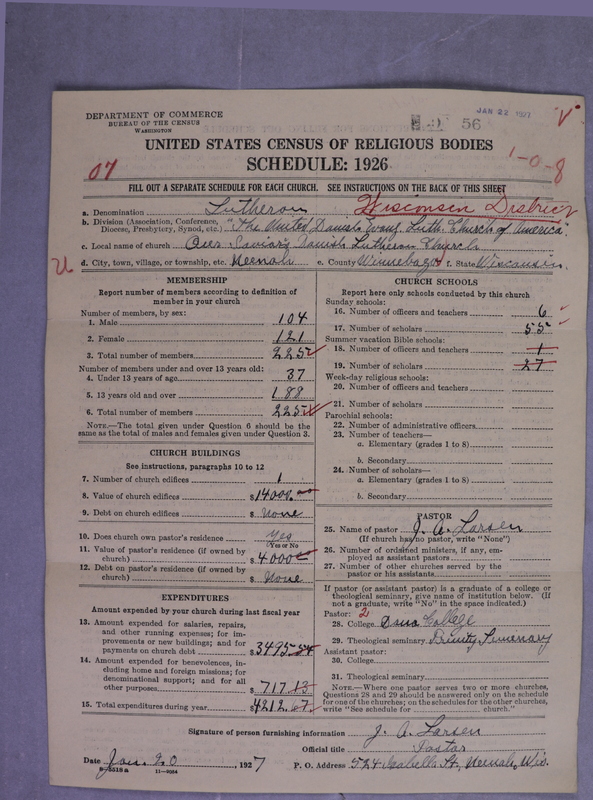 JAN 22 1927
DEPARTMENT OF COMMERCE
BUREAU OF THE CENSUS
WASHINGTON
56
UNITED STATES CENSUS OF RELIGIOUS BODIES
SCHEDULE: 1926
07
1-0-8
FILL OUT A SEPARATE SCHEDULE FOR EACH CHURCH. SEE INSTRUCTIONS ON THE BACK OF THIS SHEET
a. Denomination Lutheran Wisconsin District
b. Division (Association, Conference, Diocese, Presbytery, Synod, etc.) "The United Danish Evang. Luth. Church of America"
c. Local name of church Our Savior's Danish Lutheran Church
d. City, town, village, or township, etc. Neenah e. County Winnebago f. State Wisconsin.
MEMBERSHIP
Report number of members according to definition of
member in your church
Number of members, by sex:
1. Male 104
2. Female 121
3. Total number of members 225
Number of members under and over 13 years old:
4. Under 13 years of age 37
5. 13 years old and over 188
6. Total number of members 225
NOTE.—The total given under Question 6 should be
same as the total of males and females given under Question 3.
CHURCH BUILDINGS
See instructions, paragraphs 10 to 12
7. Number of church edifices 1
8. Value of church edifices $14000.
9. Debt on church edifices $ None
10. Does church own pastor's residence? Yes
(Yes or No)
11. Value of pastor's residence (if owned by
church) $ 4000
12. Debt on pastor's residence (if owned by
church) $ None
EXPENDITURES
Amount expended by your church during last fiscal year
13. Amount expended for salaries, repairs,
and other running expenses; for im-
provements or new buildings; and for
payments on church debt $3495.54
14. Amount expended for benevolences, in-
cluding home and foreign missions; for
denominational support; and for all
other purposes $ 717.13
15. Total expenditures during year $4212.67
CHURCH SCHOOLS
Report here only schools conducted by this church
Sunday schools:
16. Number of officers and teachers 6
17. Number of scholars 55
Summer vacation Bible schools:
18. Number of officers and teachers 1
19. Number of scholars 27
Week-day religious schools:
20. Number of officers and teachers
21. Number of scholars
Parochial schools:
22. Number of administrative officers
23. Number of teachers—
a. Elementary (grades 1 to 8)
b. Secondary
24. Number of scholars—
a. Elementary (grades 1 to 8)
b. Secondary
PASTOR
25. Name of pastor J. A. Larsen
(If church has no pastor, write "None")
26. Number of ordained ministers, if any, em-
ployed as assistant pastors
27. Number of other churches served by the
pastor or his assistants
If pastor (or assistant pastor) is a graduate of a college or
theological seminary, give name of institution below. (If
not a graduate, write "No" in the space indicated.)
Pastor: 2
28. College Dana College
29. Theological seminary Trinity Seminary
Assistant pastor:
30. College
31. Theological seminary
NOTE.—Where one pastor serves two or more churches,
Questions 28 and 29 should be answered only on the schedule
for one of the churches; on the schedules for the other churches,
write "See schedule for church."
Signature of person furnishing information J. A. Larsen
Official title Pastor
Date Jan. 20, 1927 P. O. Address 524 Isabella St., Neenah, Wis.
8-5518a 11-9004